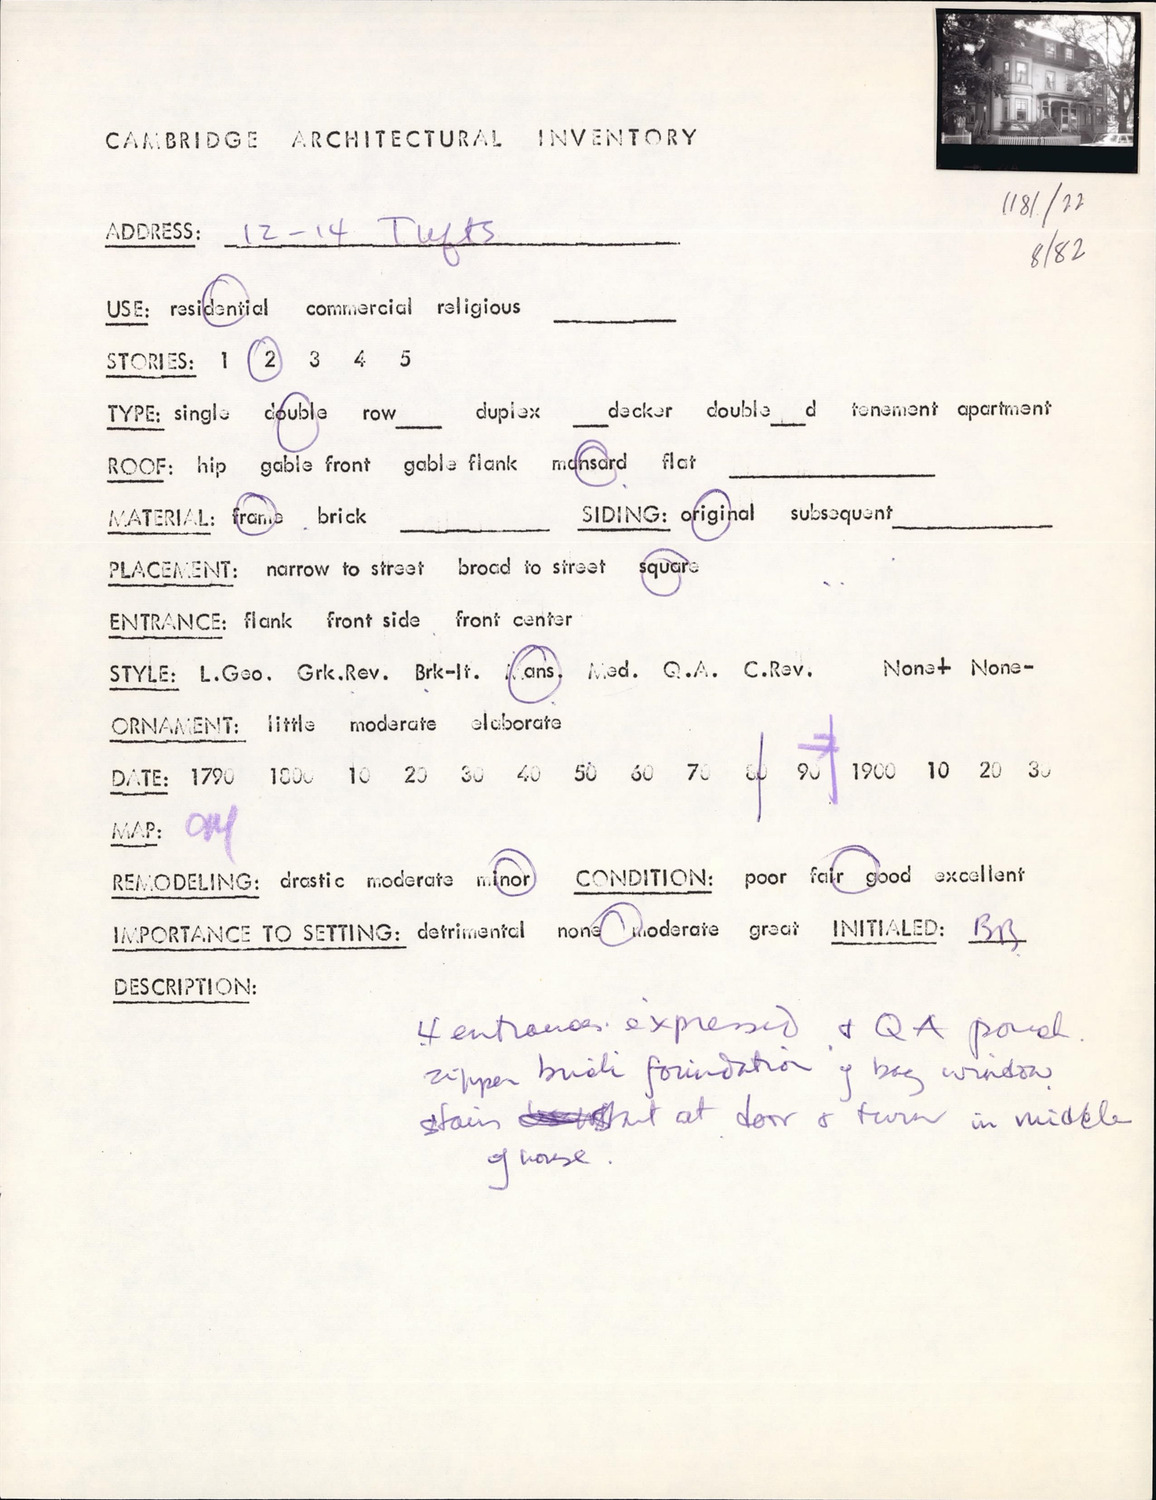 CAMBRIDGE ARCHITECTURAL INVENTORY
1181/22
8/82
ADDRESS: 12-14 Tufts
USE: residential commercial religious
STORIES: 1 2 3 4 5
TYPE: single double row___ duplex ___decker double___d tenement apartment
ROOF: hip gable front gable flank mansard flat
MATERIAL: frame brick SIDING: original subsequent
PLACEMENT: narrow to street broad to street square
ENTRANCE: flank front side front center
STYLE: L.Geo. Grk.Rev. Brk-It. Mans. Med. Q.A. C.Rev. None+ None-
ORNAMENT: little moderate elaborate
DATE: 1790 1800 10 20 30 40 50 60 70 80 90 1900 10 20 30
MAP:
REMODELING: drastic moderate minor CONDITION: poor fair good excellent
IMPORTANCE TO SETTING: detrimental none moderate great INITIALED: BB
DESCRIPTION:
4 entrances expressed & QA porch.
zipper brick foundation of bay window
stairs start at door & turn in middle
of house.